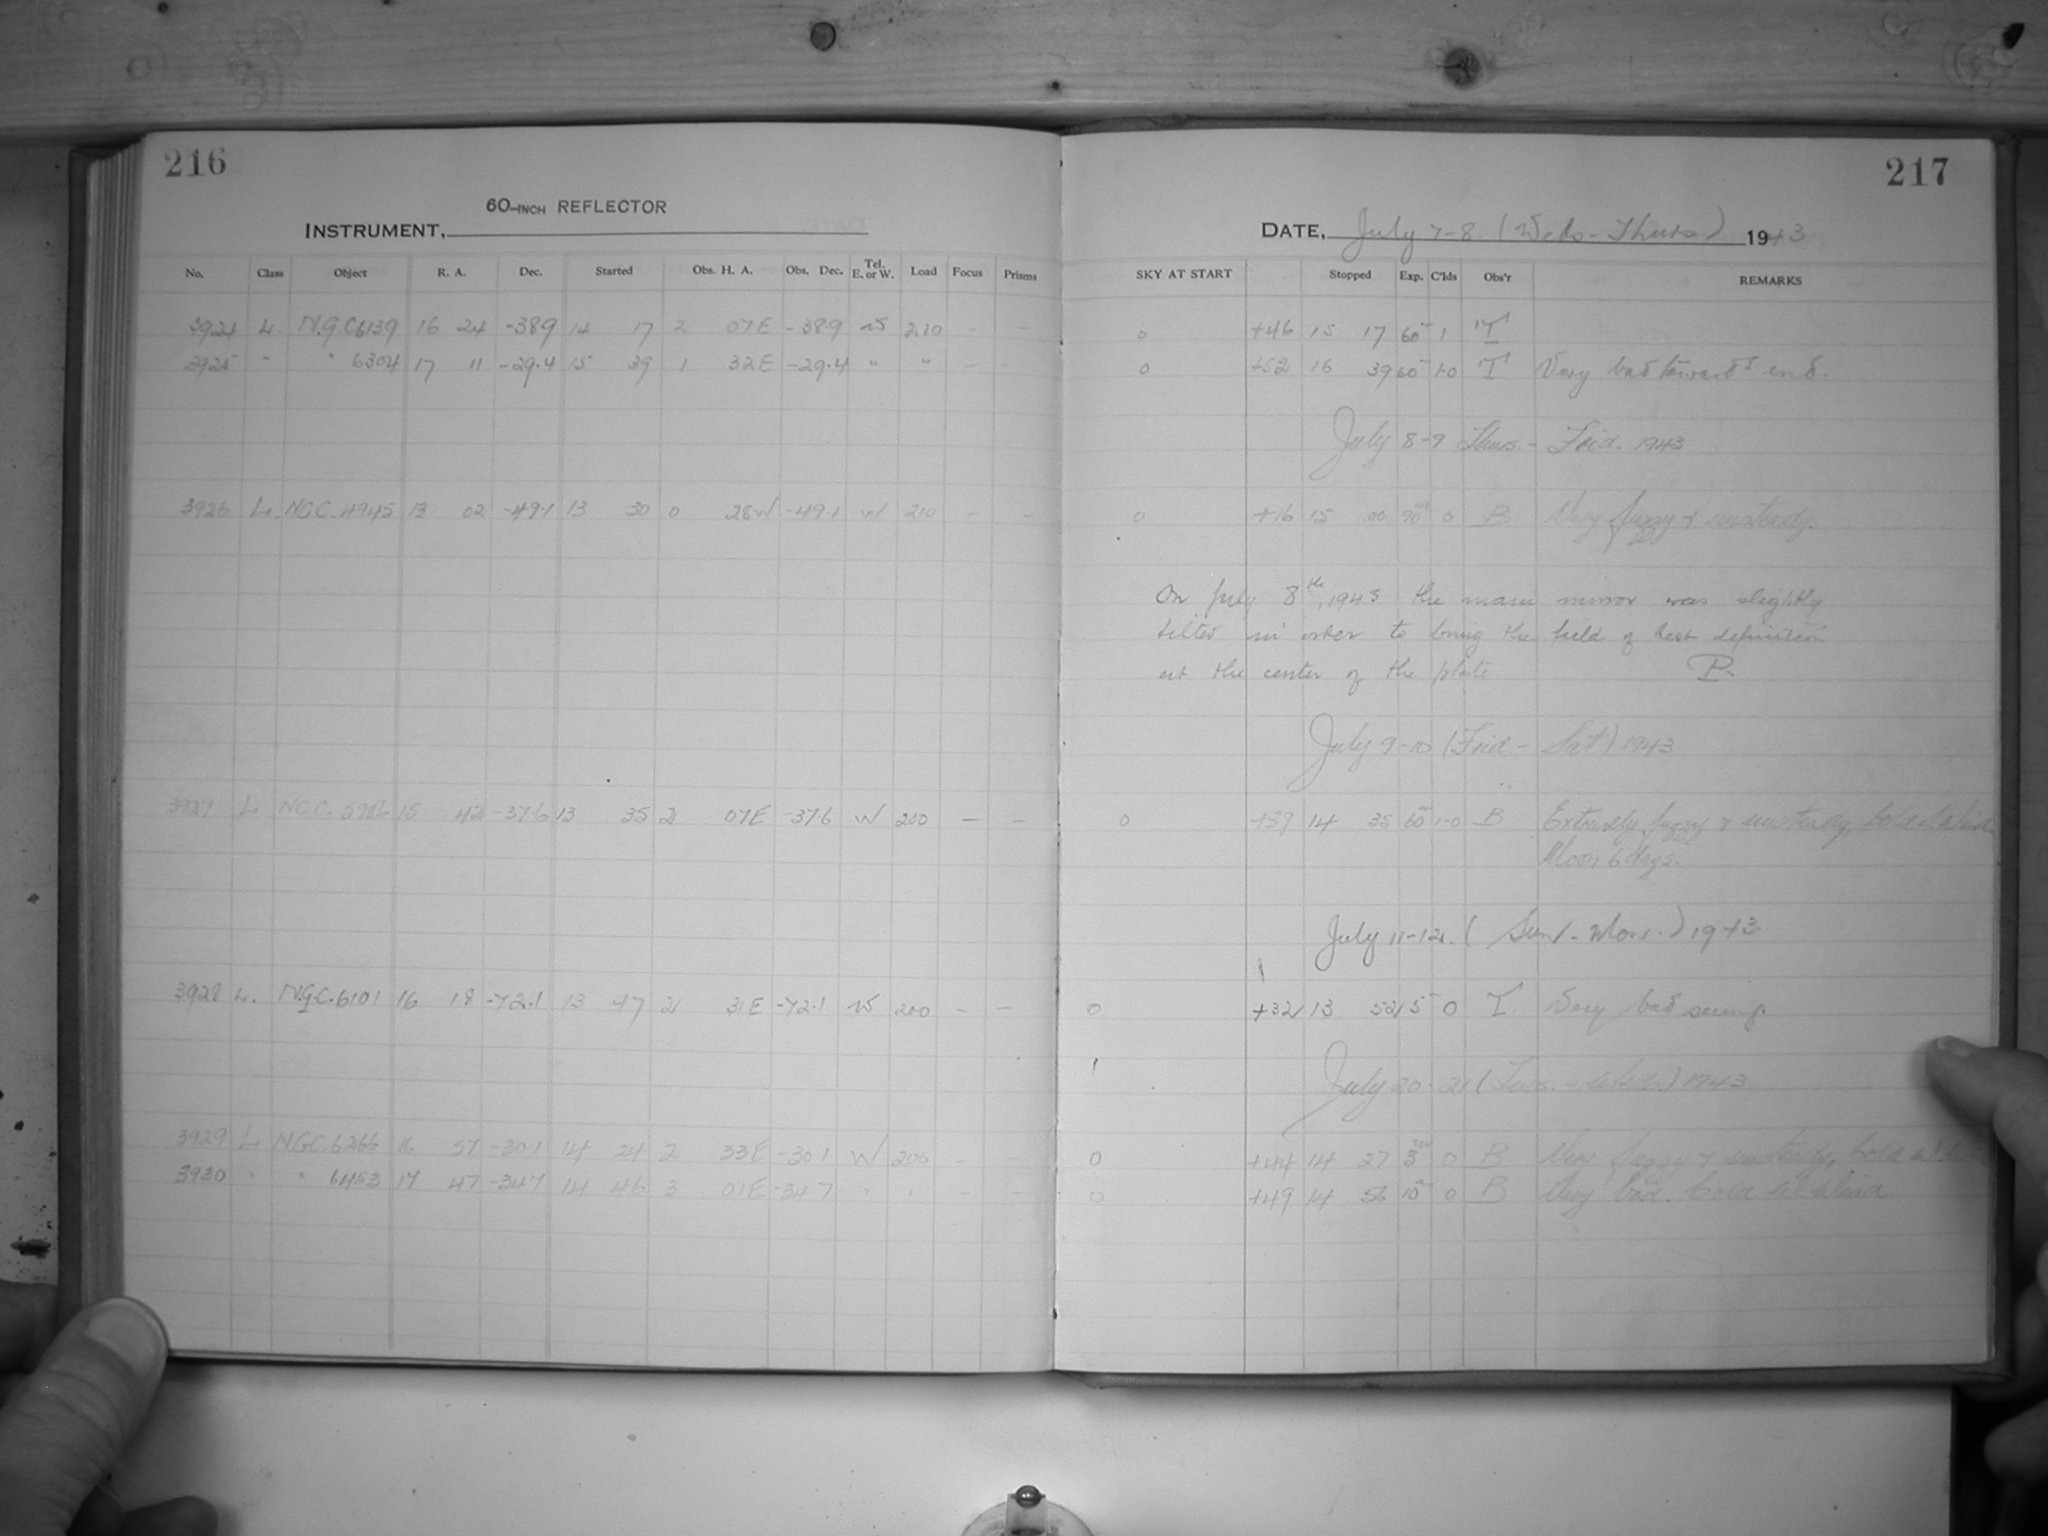 216
60-INCH REFLECTOR
INSTRUMENT,
No. Class Object R. A. Dec. Started Obs. H. A. Obs. Dec. Tel. E. or W. Load Focus Prisms
3924 L. N.G.C 6139 16 24 -38.9 14 17 2 07E -38.9 W 210 - -
3925 " " 6304 17 11 -29.4 15 39 1 32E -29.4 " " - -
3926 L. NGC. 4945 13 02 -49.1 13 30 0 28W -49.1 W 210 - -
3927 L NGC. 5986 15 42 -37.6 13 35 2 07E -37.6 W 200 - -
3928 L. N.G.C. 6101 16 18 -72.1 13 47 2 31E -72.1 W 200 - -
3929 L NGC. 6266 16 57 -30.1 14 24 2 33E -30.1 W 200 - -
3930 " " 6453 17 47 -34.7 14 46 3 01E -34.7 " " - -
217
DATE, July 7-8 (Weds - Thurs) 1943
SKY AT START Stopped Exp. C'lds Obs'r REMARKS
0 +46 15 17 60 1 T
0 +52 16 39 60 1-0 T Very bad towards end.
July 8-9 Thurs. - Frid. 1943
0 +16 15 00 90m 0 B Very fuzzy & unsteady.
On July 8th, 1943 the main mirror was slightly
tilted in order to bring the field of best definition
at the center of the plate P.
July 9-10 (Frid - Sat) 1943
0 +39 14 35 60m 1-0 B Extremely fuzzy & unsteady, Cold S Wind
Moon 6 days.
July 11-12. (Sun. - Mon.) 1943
0 +32 13 52 5 0 T. Very bad seeing.
July 20-21 (Tues. - Weds.) 1943
0 +44 14 27 3m 0 B Very fuzzy & unsteady, Cold
0 +49 14 56 10m 0 B Very bad. Cold Wind